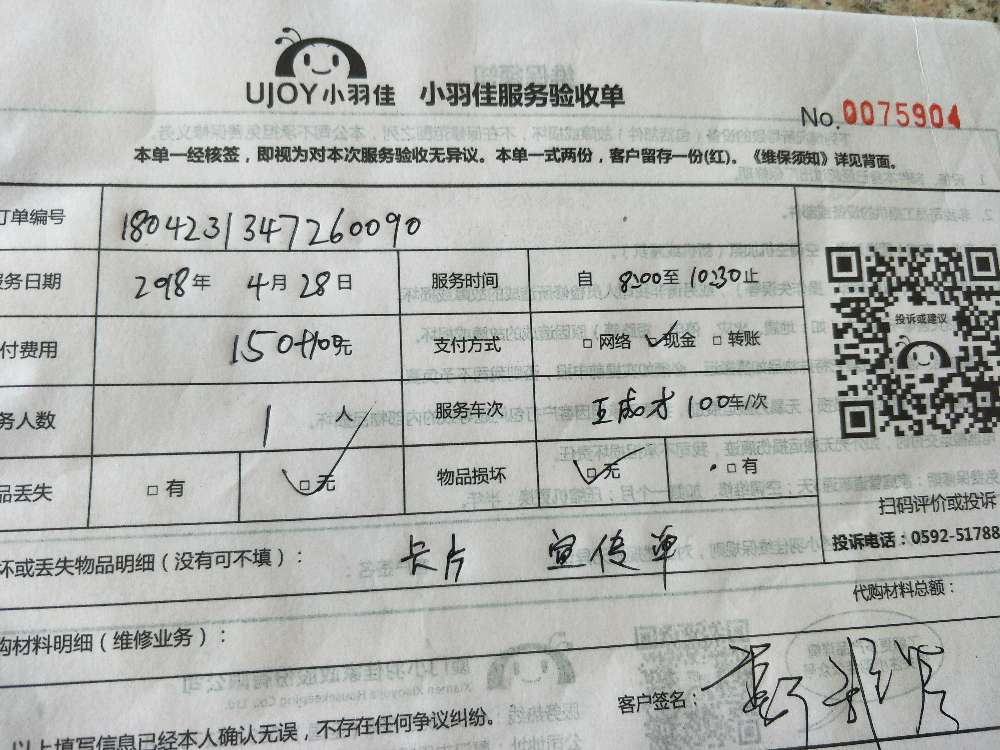 UJOY小羽佳 小羽佳服务验收单
No.0075904
本单一经核签，即视为对本次服务验收无异议。本单一式两份，客户留存一份(红)。《维保须知》详见背面。
订单编号 1804231347260090
服务日期 2018年 4月28日 服务时间 自 8:00至 10:30止
付费用 150+10元 支付方式 □网络 ☑现金 □转账
务人数 1 人 服务车次 100车/次
品丢失 □有 ☑无 物品损坏 ☑无 □有
投诉或建议
扫码评价或投诉
投诉电话：0592-51788
坏或丢失物品明细（没有可不填）： 卡片 宣传单
代购材料总额：
购材料明细（维修业务）：
客户签名：
以上填写信息已经本人确认无误，不存在任何争议纠纷。